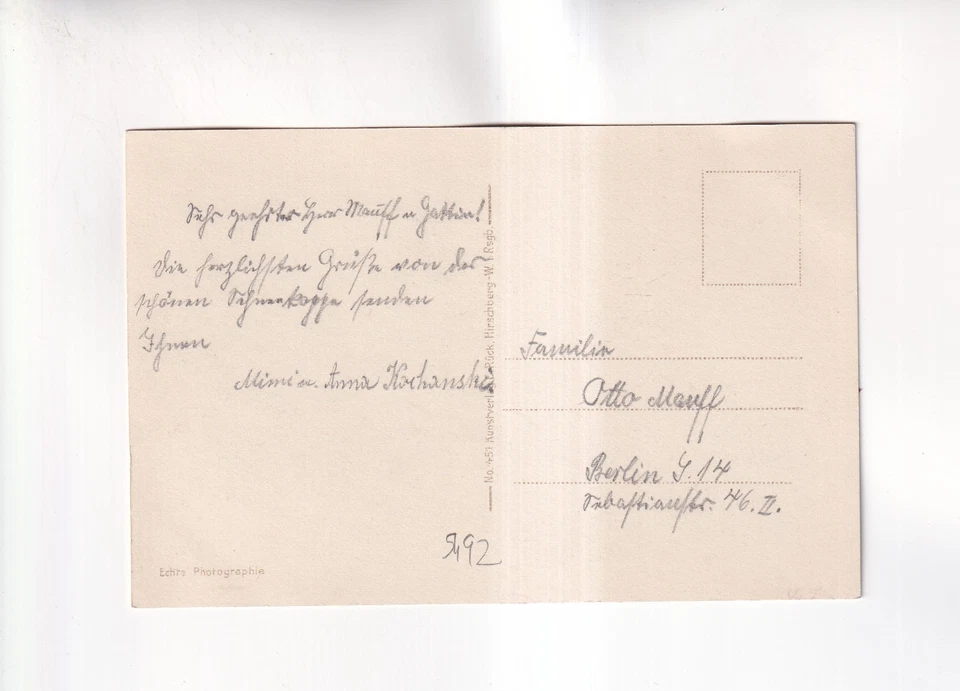 Sehr geehrter Herr Mauff u Gattin!
Die herzlichsten Grüße von der
schönen Schneekoppe senden
Ihnen
Mimi u. Anna Kochanski
No. 451 Kunstverlag Rück, Hirschberg-W. i. Rsgb.
Familie
Otto Mauff
Berlin S. 14
Sebastianstr. 46. II.
92
Echte Photographie